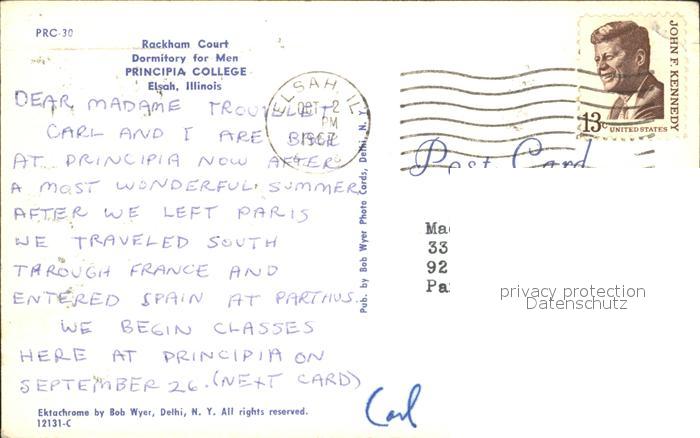 PRC-30
Rackham Court
Dormitory for Men
PRINCIPIA COLLEGE
Elsah, Illinois
DEAR MADAME
CARL AND I ARE BACK
AT PRINCIPIA NOW AFTER
A MOST WONDERFUL SUMMER
AFTER WE LEFT PARIS
WE TRAVELED SOUTH
THROUGH FRANCE AND
ENTERED SPAIN AT
WE BEGIN CLASSES
HERE AT PRINCIPIA ON
SEPTEMBER 26. (NEXT CARD)
Ektachrome by Bob Wyer, Delhi, N. Y. All rights reserved.
12131-C
Carl
ELSAH, IL
OCT 2
PM
1967
Pub. by Bob Wyer Photo Cards, Delhi, N. Y.
JOHN F. KENNEDY
13c
UNITED STATES
Post Card
33
92
privacy protection
Datenschutz